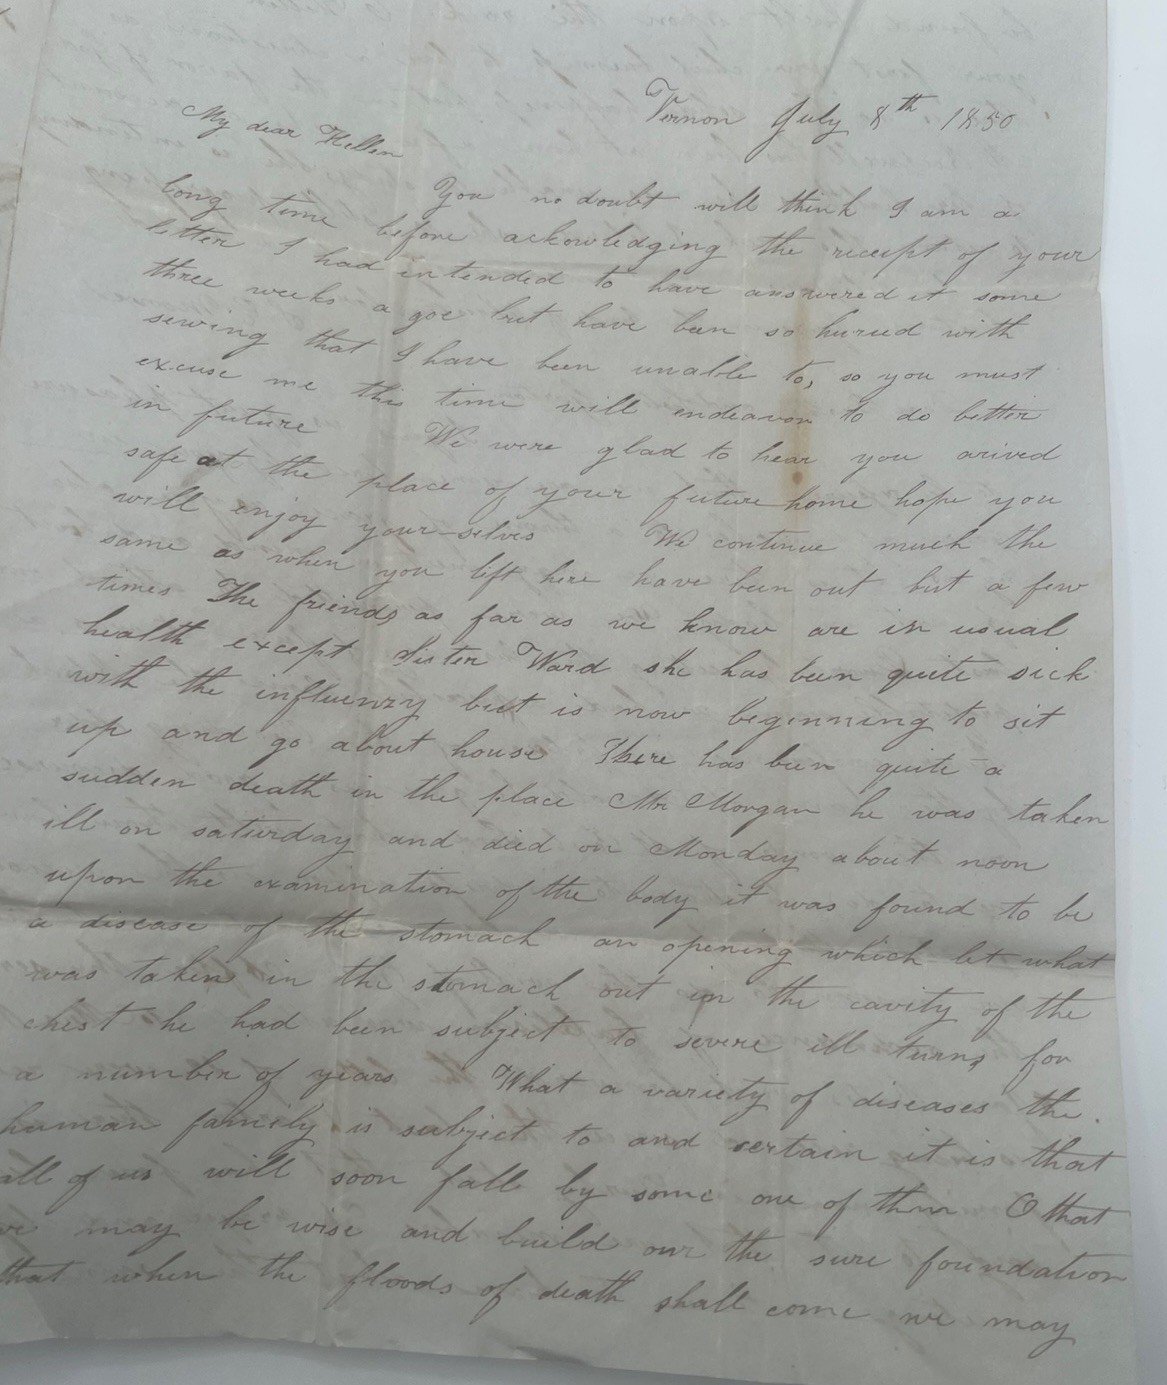 Vernon July 8th 1850
My dear Hellen
You no doubt will think I am a
long time before acknowledging the receipt of your
letter I had intended to have answered it some
three weeks a goe but have been so huried with
sewing that I have been unable to, so you must
excuse me this time will endeavor to do better
in future We were glad to hear you arived
safe at the place of your future home hope you
will enjoy your-selves We continue much the
same as when you left here have been out but a few
times The friends as far as we know are in usual
health except Sister Ward she has been quite sick
with the influenzy but is now beginning to sit
up and go about house There has been quite a
sudden death in the place Mr Morgan he was taken
ill on saturday and died on Monday about noon
upon the examination of the body it was found to be
a disease of the stomach an opening which let what
was taken in the stomach out in the cavity of the
chest he had been subject to severe ill turns for
a number of years What a variety of diseases the
human family is subject to and certain it is that
all of us will soon fall by some one of them O that
we may be wise and build on the sure foundation
that when the floods of death shall come we may